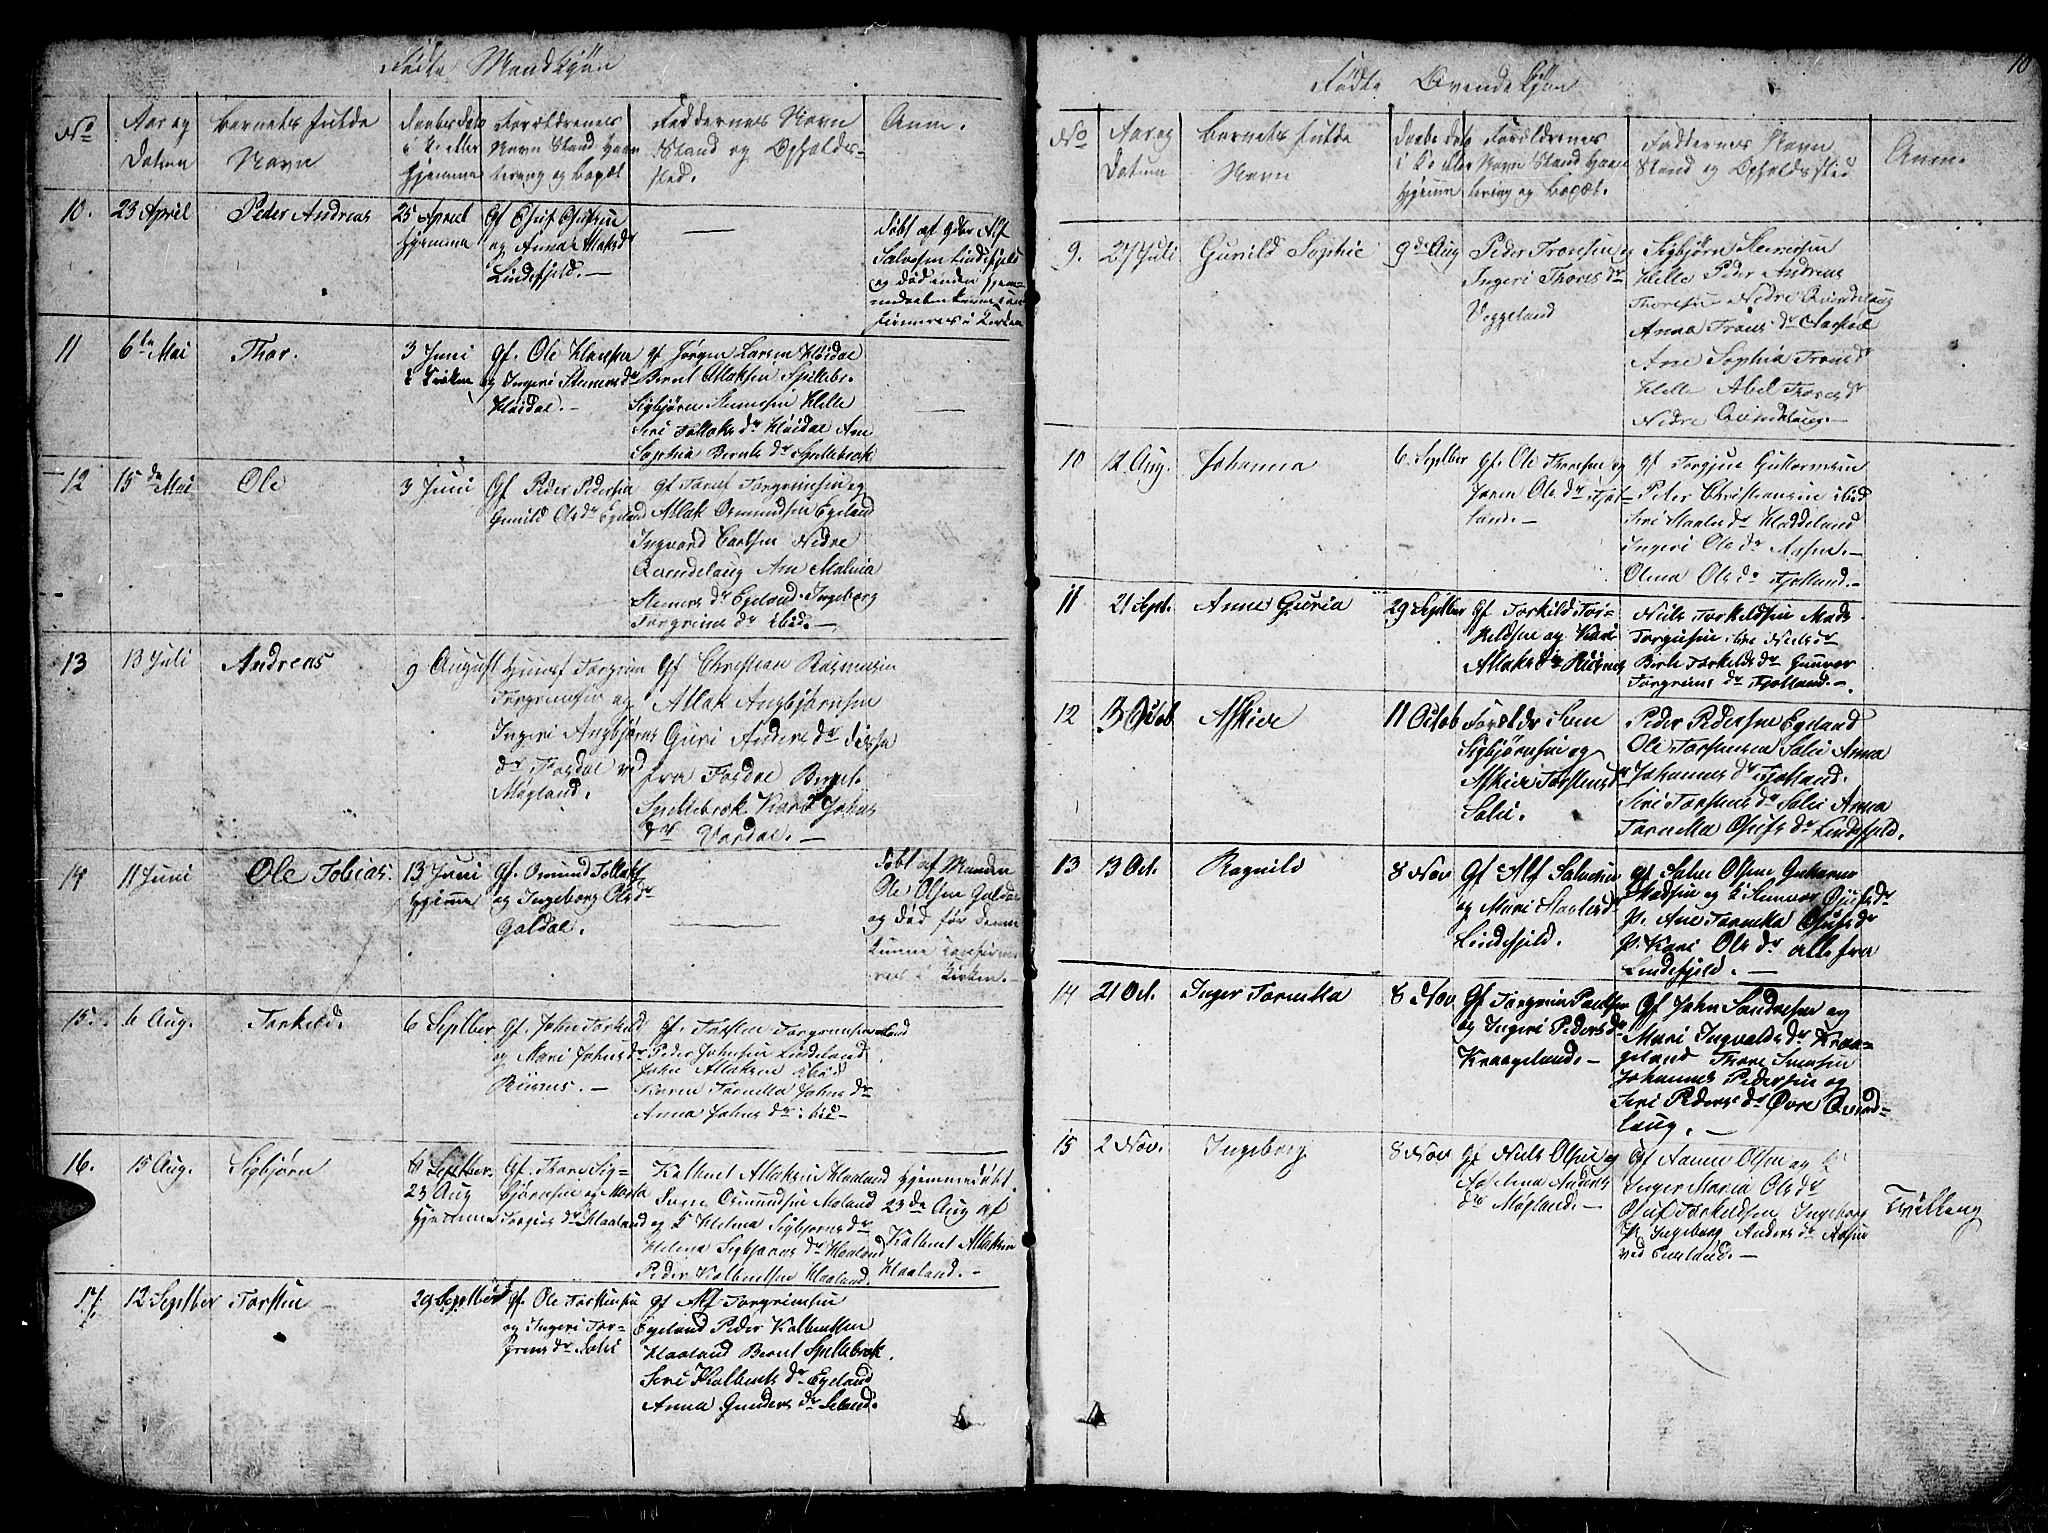 Fødte Mandkjøn
No
Aar og
Datum
Barnets fulde
Navn
Daabs Dato
i K eller
Hjemme
Forældrenes
Navn Stand Haan
tering og Bopæl
Faddernes Navn
Stand og Opholds-
sted.
Anm.
10.
23 April
Peder Andreas
25 April
hjemme
Gf Osuf Osufsen
og Anna Aslaksdr
Lindefjeld. —
—
døbt af Alf
Salvesen Lindefjeld
og død enden hjem-
medaaben kunne con
firmeres i Kirken
11
6te Mai
Thor.
3 Juni
i Kirken
gf. Ole Hansen
og Ingeri Steners dr
Høidal. —
gf Jørgen Larsen Høidal
Bernt Atlaksen Spillebr.
Sigbjørn Stenersen Helle
Siri Tollaks dr Høidal Ane
Sophia Bernts dr Spillebrok
—
12
15de Mai
Ole
3 Juni
Gf Peder Pedersen
Gunild Ols dr Egeland
gf Torgrimsen og
Atlak Osmundsen Egeland
Ingvard Carlsen Nedre
Qvindelaug Ane Malvia
Steners dr Egeland. Ingeborg
Torgrims dr ibid. —
13
13 Juli
Andreas
9 August
Huusf Torgrim
Torgrimsen og
Ingeri Ansbjørns
dr Fosdal ved
Møgland.
Gf Christian Rasmussen
Atlak Ansbjørnsen
Guri Anders dr disse
fra Fosdal Bernt
Spillebrok Karo Johns
dr Vordal. —
14
11 Juni
Ole Tobias.
13 Juni
hjemme
gf. Osmund Tollaks
og Ingeborg Ols dr
Galdal.
—
døbt af Manden
Ole Olsen Galdal
og død før denne
kunne confirme
res i Kirken. —
15.
6 Aug.
Torkild.
6 Septber
Gf. John Torkild
og Mari Johns dr
Riisnes. —
gf. Torsten Torgrimsen
Peder Johnsen Lindeland
John Atlaksen ibid
Karen Tomella Johns dr
Anna Johns dr ibid —
16.
15 Aug.
Sigbjørn
6 Septber
23 Aug
hjemme
Gf. Thore Sig-
bjørnsen og Marta
Torgius dr Haaland
Kalbent Atlaksen Haaland
Svend Osmundsen Maland
og Helena Sigbjørns dr
Helena Sigbjørns dr Haaland
Peder Kalbentsen Haaland.
Hjemmedøbt.
23de Aug af
Kalbent Atlaksen
Haaland. —
17.
12 Septber
Torsten
29 Septber
gf. Ole Torstensen
og Ingeri Tor-
grims dr Salie
Gf Alf Torgrimsen
Egeland Peder Kalbentsen
Haaland Bernt Spillebrok
Siri Kalbents dr Egeland
Anna Gunders dr
Fødte Qvindekjøn
10
No
Aar og
Datum
Barnets fulde
Navn
Daabs Dato
i K eller
Hjemme
Forældrenes
Navn Stand Haan
tering og Bopæl.
Faddernes Navn
Stand og Opholdssted
Anm.
9.
27 Juli
Gunild Sophie
9de Aug
Peder Tronsen og
Ingeri Thores dr
Veggeland
Sigbjørn Stenersen
Helle Peder Andreas
Thoresen Nedre Qvindelaug
Anna Trons dr
Ane Sophia Trons dr
Helle Abel Thores dr
Nedre Qvindelaug. —
10
12 Aug.
Johanna
6. Septber
Gf. Ole Thorsen og
Joren Ols dr Fjot-
land. —
gf Torgjus Guttormsen
Peter Christiansen ibid
Siri Staales dr Haddeland
Ingeri Ols dr Aasen. —
Olena Ols dr Fjotland. —
11
21 Sept.
Anne Guria
29 Septber
Gf Torkild Tor-
kildsen og Kari
Atlaks dr Riisnes
Niels Torkildsen Mads
Torgiusen Siri Niels dr
Berte Torkilds dr Gunvor
Torgrims dr Fjotland. —
12
13 Octob
Askier
11 Octob
Foræld: Sven
Sigbjørnsen og
Askier Torstens dr
Salie.
Peder Pedersen Egeland
Ole Torstensen Salie Anna
Johannes dr Fjotland.
Siri Torstens dr Salie Anna
Tomella Osufs dr Lindefjeld.
13
13 Oct.
Ragnild
8 Nov
Gf Alf Salvesen
og Mari Staales dr
Lindefjeld.
gf Salve Olsen Guttorm
og K Gunvor Osufs dr
P. Ane Tomella Osufs dr
P. Kari Ols dr alle fra
Lindefjeld. —
14
21 Oct.
Inger Tomella
8 Nov
Gf Torgrim Paulsen
og Ingeri Peders dr
Kraageland. —
Gf John Sandersen og
Mari Ingvalds dr Kraa-
geland Thore Svensen
Johannes Pedersen og
Siri Peders dr Øvre Qvind-
laug. —
15
2 Nov.
Ingeborg
8 Nov
Gf Niels Olsen og
Aaselena Anders
dr Møgland. —
Gf Aanen Olsen og K
Inger Maria Ols dr
Osuf Torkildsen Ingeborg
P. Ingeborg Anders dr Aasen
ved
Tvilling